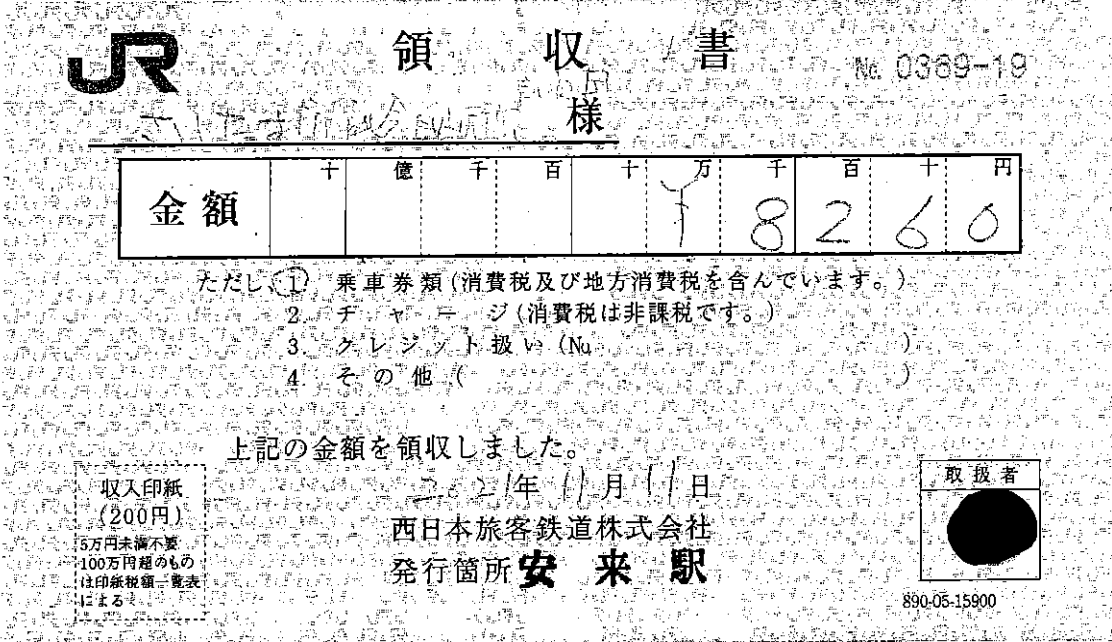 JR 領収書 No. 0369-19
さいたま市議会 様
十 億 千 百 十 万 千 百 十 円
金額 ¥ 8 2 6 0
ただし、① 乗車券類(消費税及び地方消費税を含んでいます。)
2. チャージ(消費税は非課税です。)
3. クレジット扱い(No. )
4. その他( )
上記の金額を領収しました。
2021年 11月 11日
西日本旅客鉄道株式会社
発行箇所 安来駅
収入印紙
(200円)
5万円未満不要
100万円超のもの
は印紙税額一覧表
による
取扱者
890-05-15900